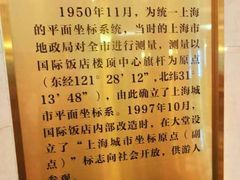 1950年11月，为统一上海
的平面坐标系统，当时的上海市
地政局对全市进行测量，测量以
国际饭店楼顶中心旗杆为原点
（东经121° 28′ 12″，北纬31°
13′ 48″），由此确立了上海城
市平面坐标系。1997年10月，
国际饭店内部改造时，在大堂设
立了“上海城市坐标原点（副
点）”标志向社会开放，供游人
参观。